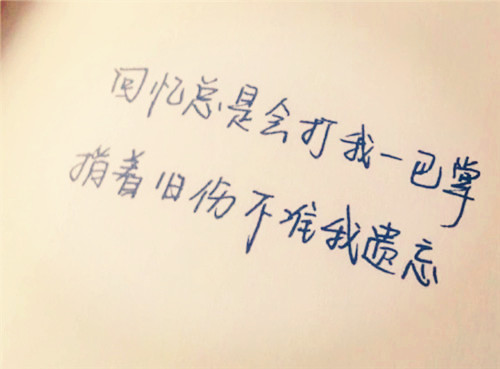 回忆总是会打我一巴掌
揹着旧伤不准我遗忘